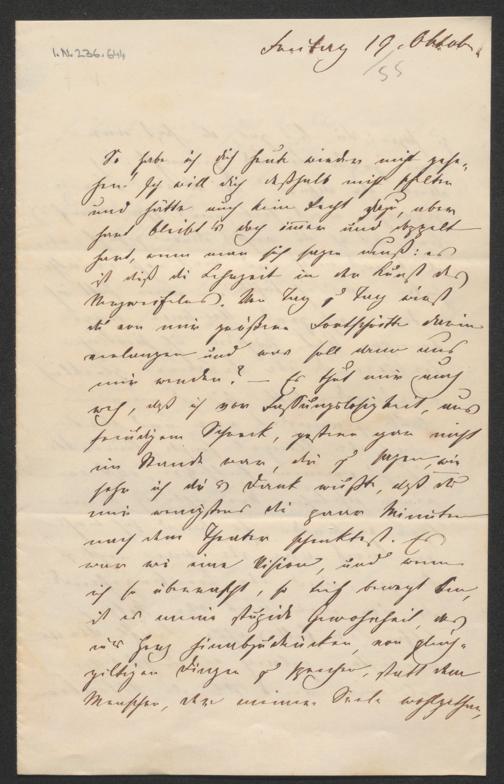 I.N. 236.644
Freitag 19. Oktober
/55
So habe ich dich heute wieder nicht gese-
hen! Ich will dich deßhalb nicht schelten
und hätte auch kein Recht dazu, aber
hart bleibt es doch immer und doppelt
hart, wenn man sich sagen muß: es
ist dieß die Lehrzeit in der Kunst des
Verzweifelns. Von Tag zu Tag wirst
du von mir größere Fortschritte darin
verlangen und was soll dann aus
mir werden? – Es thut mir auch
weh, daß ich vor Fassungslosigkeit, aus
freudigem Schreck, gestern gar nicht
im Stande war, dir zu sagen, wie
sehr ich dir es Dank wußte, daß du
mir wenigstens die paar Minuten
nach dem Theater schenktest. Es
war wie eine Vision, und wenn
ich so überrascht, so tief bewegt bin,
ist es meine stupide Gewohnheit, das
ins Herz hinabzudrücken, von gleich-
giltigen Dingen zu sprechen, statt dem
Menschen, der meiner Seele wohlgethan,